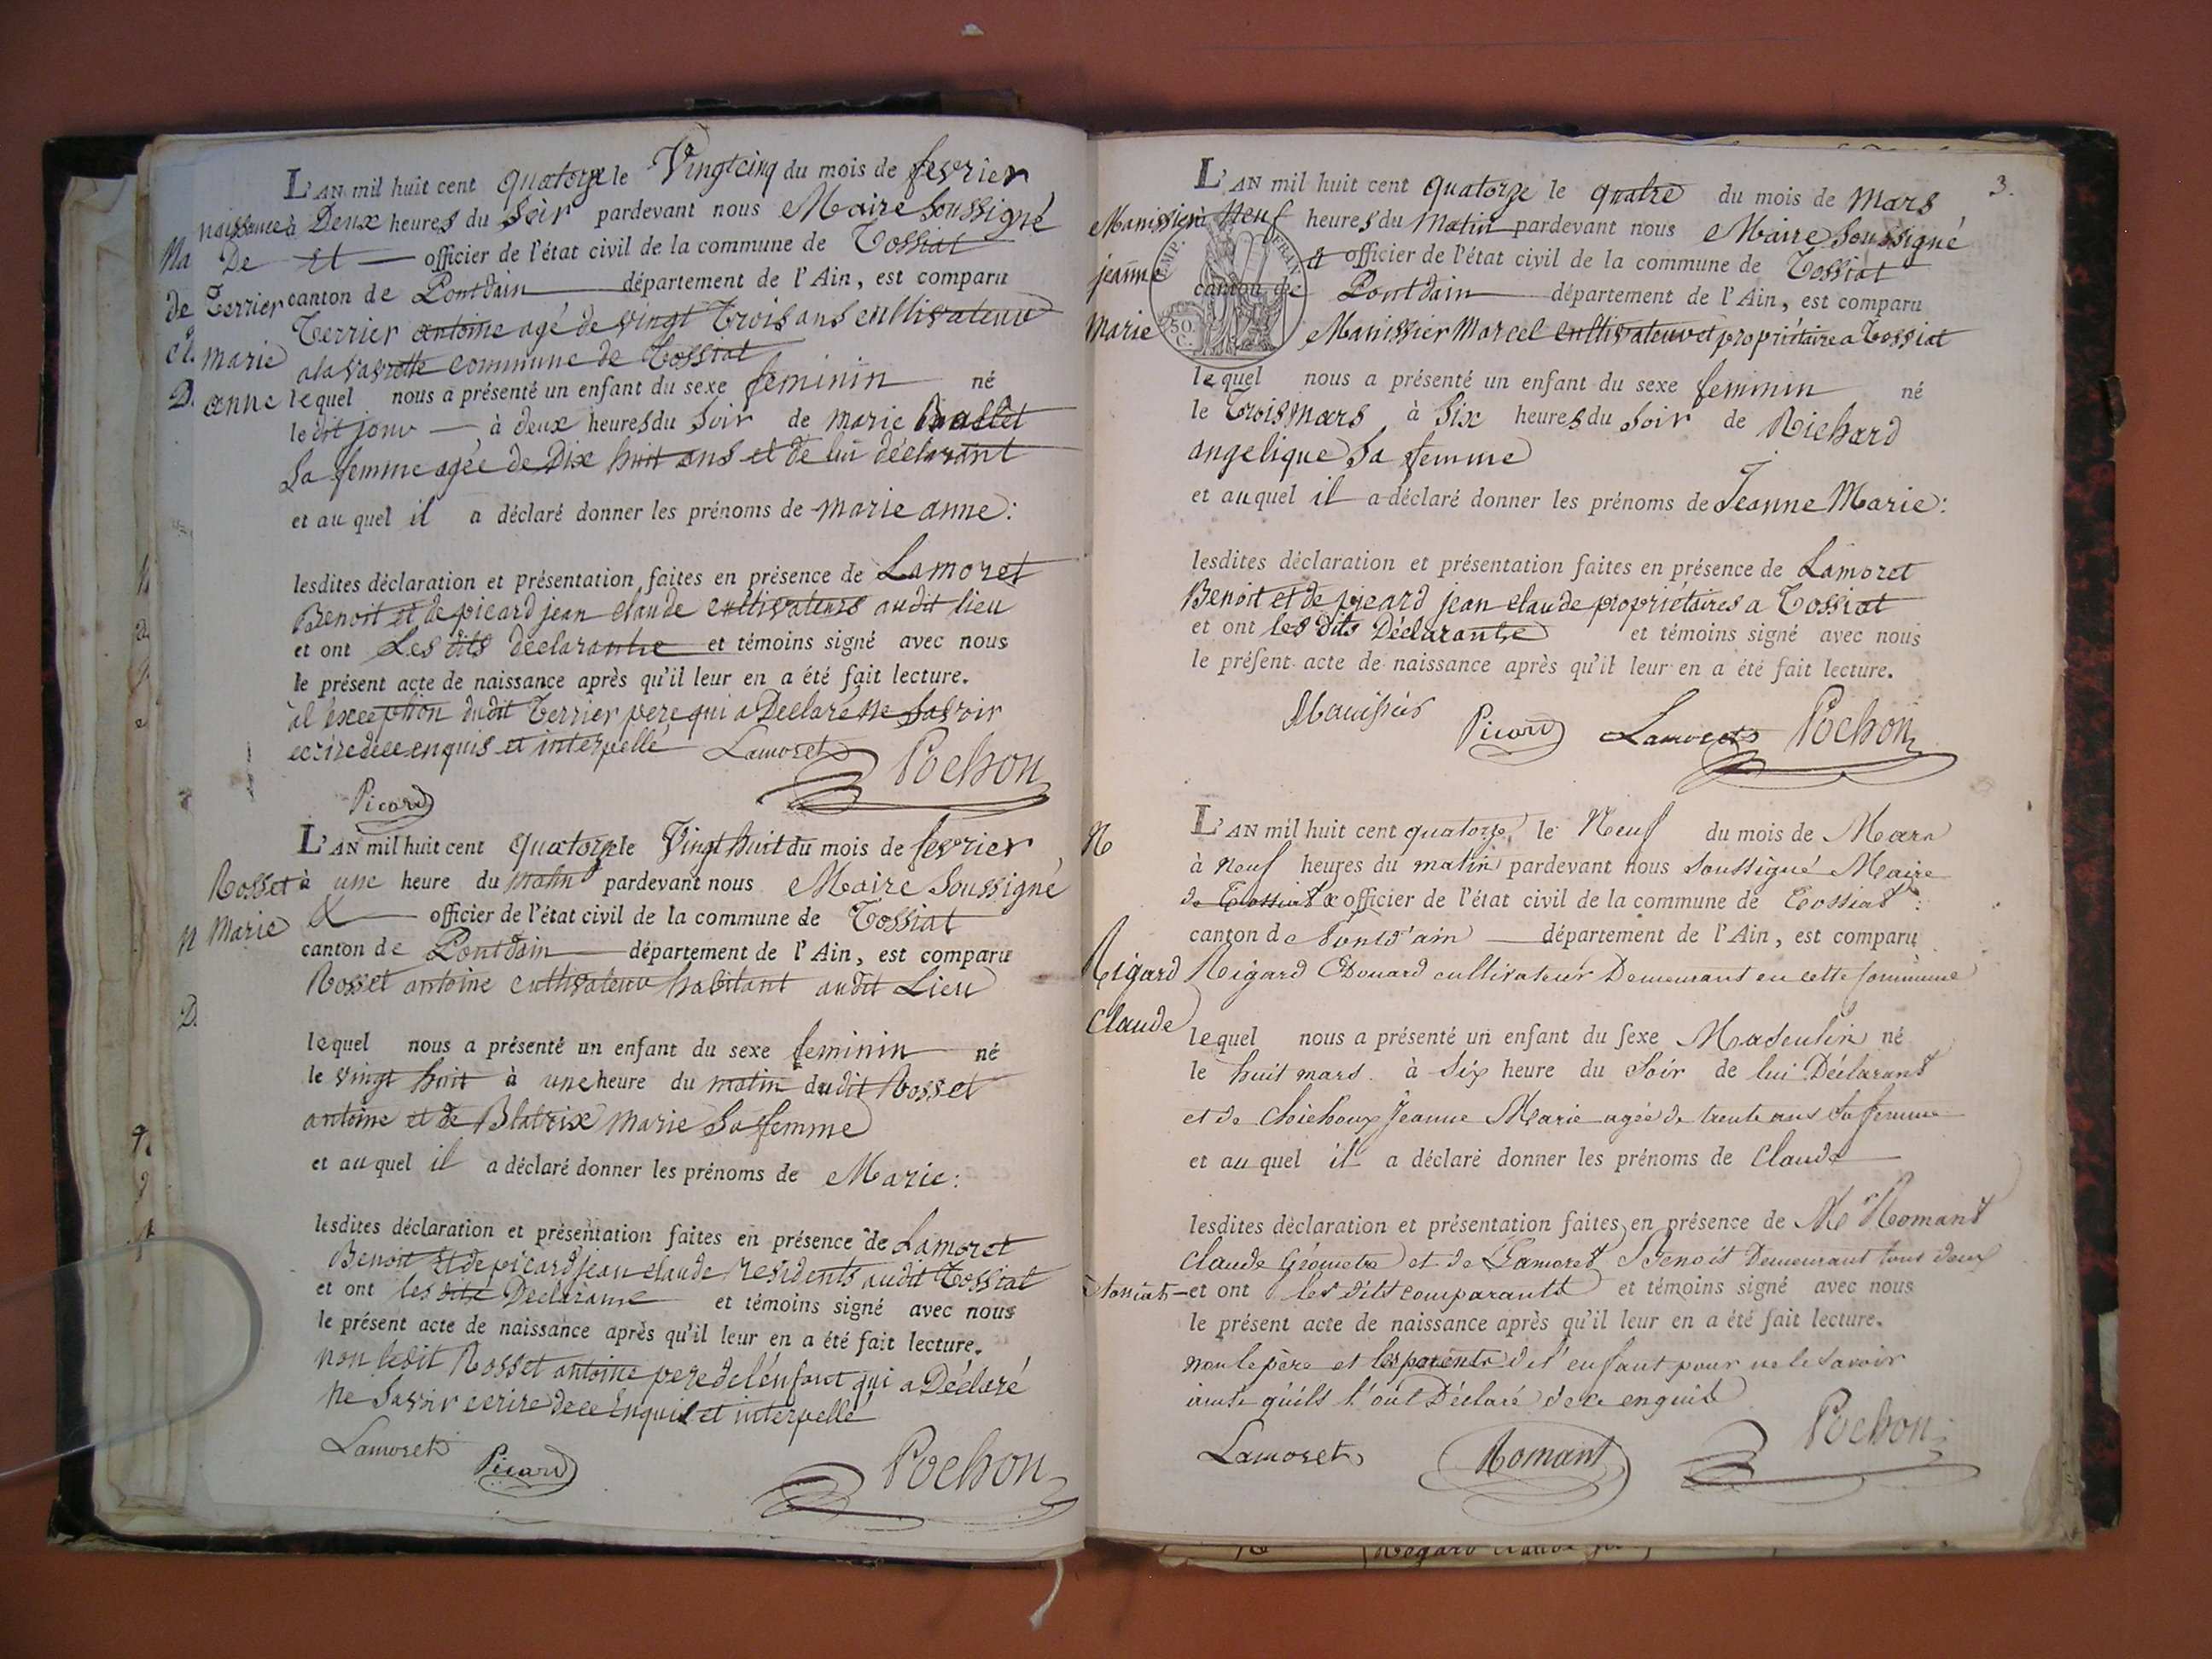 L'AN mil huit cent quatorze le Vingtcinq du mois de fevrier
naissance à Deux heures du Soir pardevant nous Maire Soussigné
De et officier de l'état civil de la commune de Tossiat
Terrier canton de Pontdain département de l'Ain, est comparu
Terrier antoine agé de vingt Trois ans cultivateur
marie a la vavrette commune de Tossiat
anne lequel nous a présenté un enfant du sexe feminin né
le dit jour à deux heures du Soir de marie
Sa femme agée de Dix huit ans et de lui déclarant
et au quel il a déclaré donner les prénoms de marie anne:
lesdites déclaration et présentation faites en présence de Lamoret
Benoit et de picard jean claude cultivateurs audit lieu
et ont Les dits declarantre et témoins signé avec nous
le présent acte de naissance après qu'il leur en a été fait lecture.
àl exception dudit Terrier pere qui a Declaré ne Savoir
ecrire dece enquis et interpellé Lamoret Pochon
Picard
L'AN mil huit cent quatorze le Vingt huit du mois de fevrier
Rosset à une heure du matin pardevant nous Maire Soussigné
Marie & officier de l'état civil de la commune de Tossiat
canton de Pontdain département de l'Ain, est comparu
Rosset antoine cultivateur habitant audit Lieu
lequel nous a présenté un enfant du sexe feminin né
le vingt huit à une heure du matin dudit Rosset
antoine et de Blatrix Marie Sa femme
et au quel il a déclaré donner les prénoms de Marie:
lesdites déclaration et présentation faites en présence de Lamoret
Benoit Et de picard jean claude residents audit Tossiat
et ont les dits Declarants et témoins signé avec nous
le présent acte de naissance après qu'il leur en a été fait lecture.
non ledit Rosset antoine pere de l'enfant qui a Déclaré
ne Savoir ecrire dece Enquis et interpellé
Lamoret Picard Pochon
3.
L'AN mil huit cent quatorze le quatre du mois de Mars
Manissier à Neuf heures du Matin pardevant nous Maire Soussigné
jeanne & officier de l'état civil de la commune de Tossiat
canton de Pontdain département de l'Ain, est comparu
Marie Manissier Marcel cultivateur et propriétaire a Tossiat
lequel nous a présenté un enfant du sexe feminin né
le Trois mars à Six heures du Soir de Richard
angelique Sa femme
et au quel il a déclaré donner les prénoms de Jeanne Marie:
lesdites déclaration et présentation faites en présence de Lamoret
Benoit et de picard jean claude propriétaires a Tossiat
et ont les Dits Déclarantre et témoins signé avec nous
le présent acte de naissance après qu'il leur en a été fait lecture.
Picard Lamoret Pochon
L'AN mil huit cent quatorze, le Neuf du mois de Mars
N à neuf heures du matin pardevant nous Soussigné Maire
de Tossiat & officier de l'état civil de la commune de Tossiat
canton de Pontd'ain département de l'Ain, est comparu
Rigard Rigard Edouard cultivateur Demeurant en cette Commune
Claude lequel nous a présenté un enfant du sexe Masculin né
le huit mars à Six heure du Soir de lui Déclarant
et de Jeanne Marie agée de trente ans Sa femme
et au quel il a déclaré donner les prénoms de Claude
lesdites déclaration et présentation faites en présence de Mr Romant
Claude Géometre et de Lamoret Benoit Demeurant tous deux
à Tossiat et ont les dits comparants et témoins signé avec nous
le présent acte de naissance après qu'il leur en a été fait lecture.
non le père et les parents de l'enfant pour ne le Savoir
ainsi qu'ils l'ont Déclaré de ce enquis
Lamoret Romant Pochon